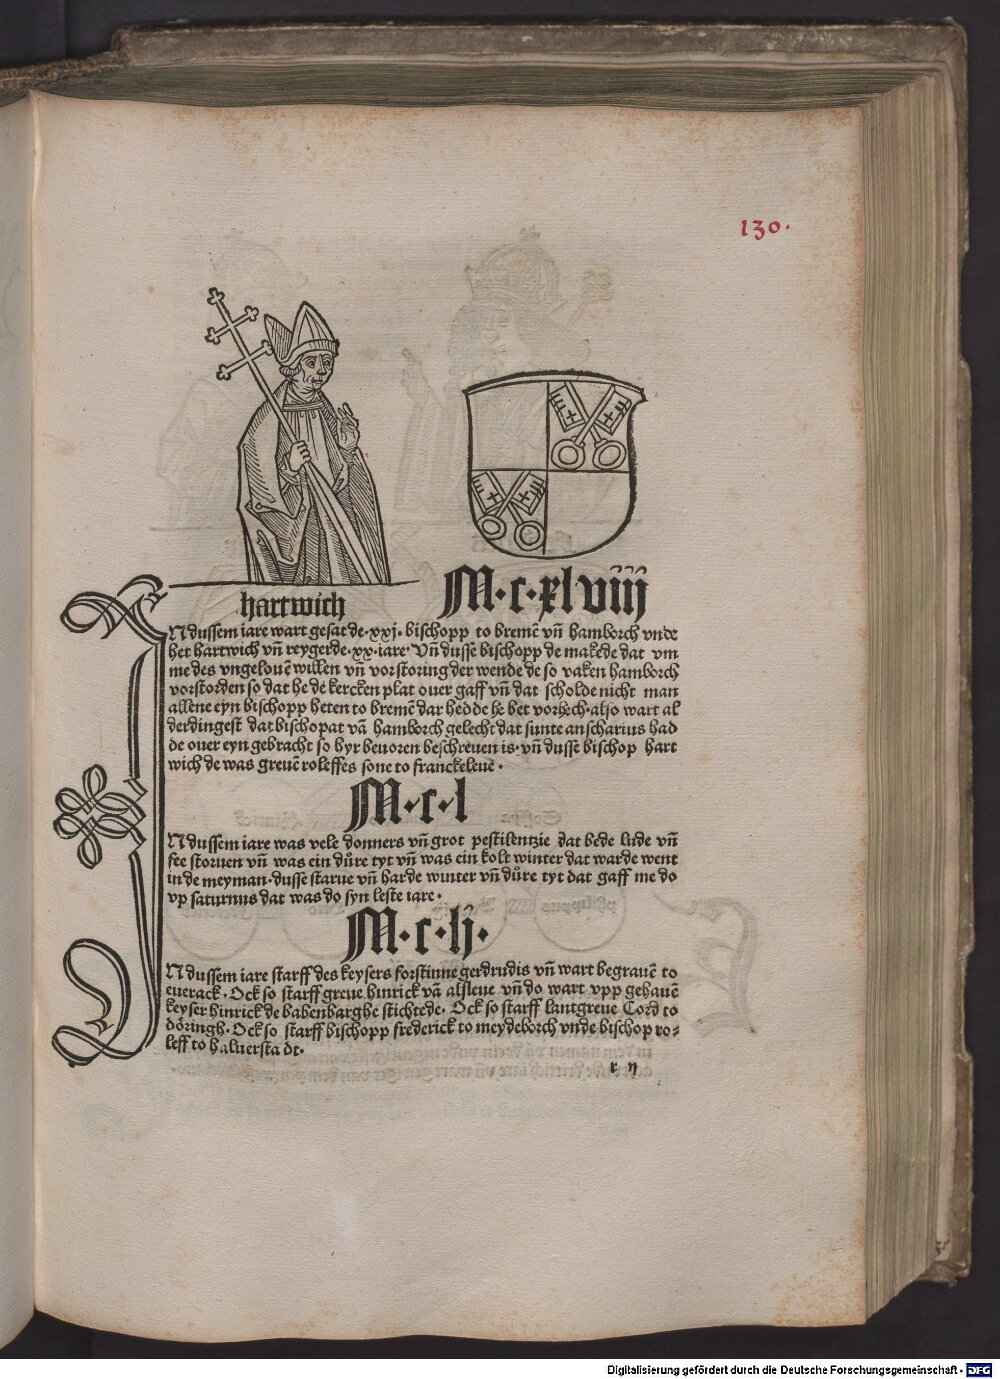 130.
hartwich
M·c·xlviij
IN dussem iare wart gesat de·xxj·bischopp to bremē vñ hamborch vnde
het hartwich vñ reygerde·xx·iare· Vñ dusse bischopp de makede dat vm
me des vngelouē willen vñ vorstoring der wende de so vaken hamborch
vorstorden so dat he de kercken plat ouer gaff vñ dat scholde nicht man
allene eyn bischopp heten to bremē dar hedde he bet vorhech·also wart al
derdingest dat bischopat vā hamborch gelecht dat sunte anscharius had
de ouer eyn gebracht so hyr beuoren beschreuen is·vñ dusse bischop hart
wich de was greuē roleffes sone to franckeleue·
M·c·l
N dussem iare was vele donners vñ grot pestilentzie dat bede lude vñ
fee storuen vñ was ein důre tyt vñ was ein kolt winter dat warde went
in de meyman·dusse starue vñ harde winter vñ důre tyt dat gaff me do
vp saturnus dat was do syn leste iare·
M·c·lij·
N dussem iare starff des keysers forstinne gerdrudis vñ wart begrauē to
euerack·Ock so starff greue hinrick vā alsleue vñ do wart vpp gehauē
keyser hinrick de babenbarghe stichtede·Ock so starff lantgreue Cord to
döringh·Ock so starff bischopp frederick to meydeborch vnde bischop ro-
leff to haluersta dt·
r ij
Digitalisierung gefördert durch die Deutsche Forschungsgemeinschaft - DFG